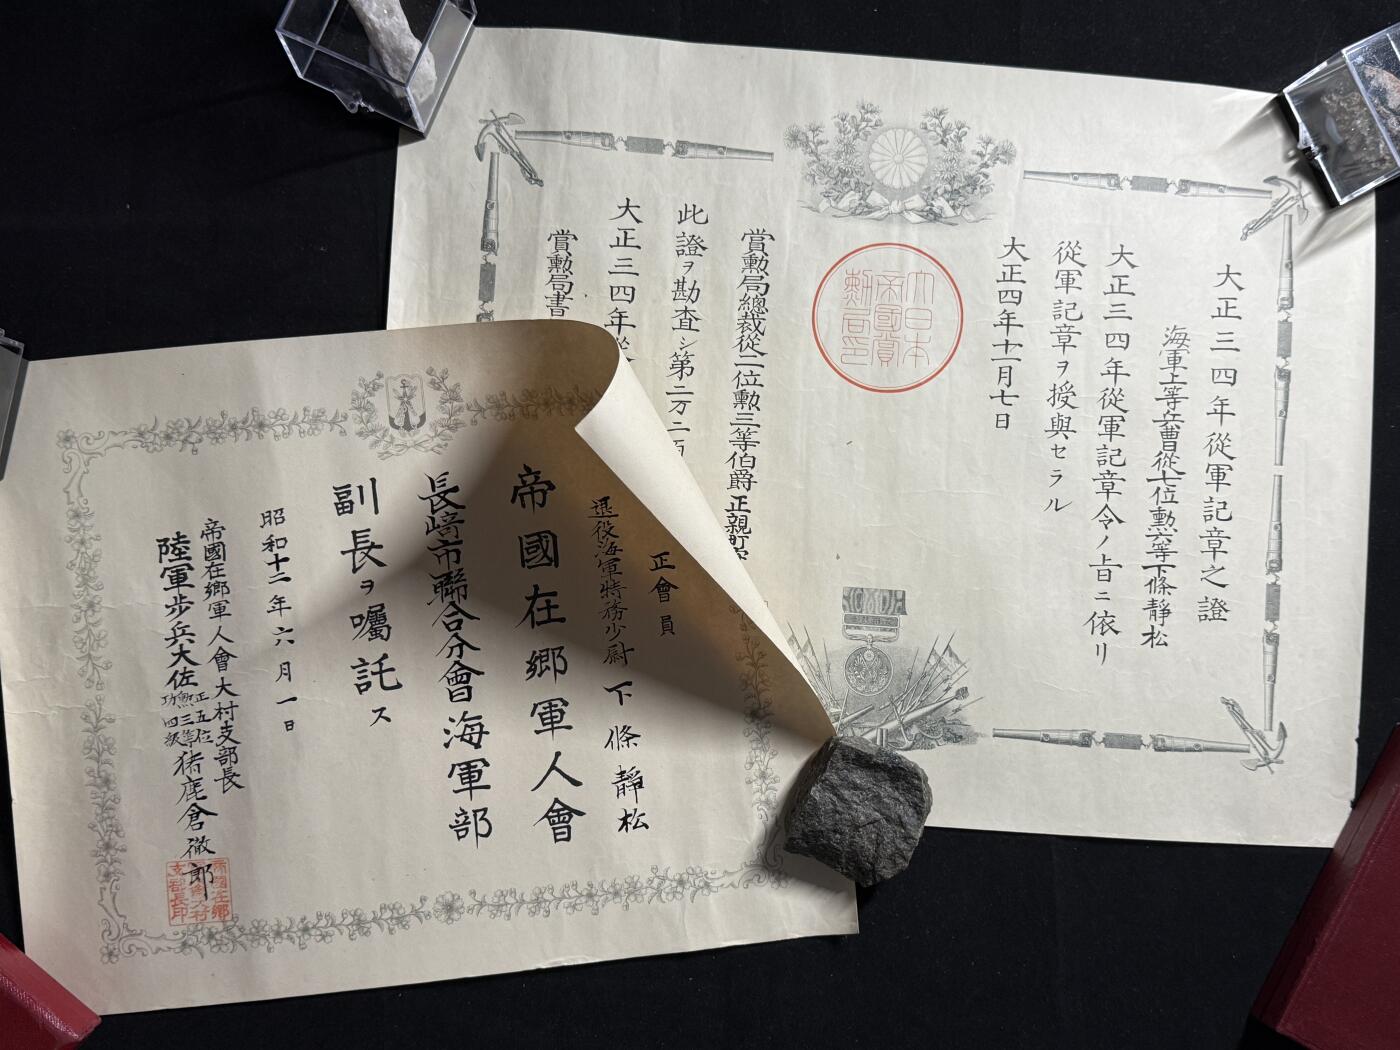 大正三四年從軍記章之證
海軍上等兵曹從七位勲六等下條靜松
大正三四年從軍記章令ノ旨ニ依リ
從軍記章ヲ授與セラル
大正四年十一月七日
大日本
帝國賞
勲局印
賞勲局總裁從二位勲三等伯爵正親町實
此證ヲ勘査シ第二万二百
大正三四年從
賞勲局書
正會員
退役海軍特務少尉 下條靜松
帝國在郷軍人會
長崎市聯合分會海軍部
副長ヲ囑託ス
昭和十二年六月一日
帝國在郷軍人會大村支部長
陸軍步兵大佐 正五位 勲三等 功四級 猪鹿倉徹郎
帝國在郷
軍人會大村
支部長印